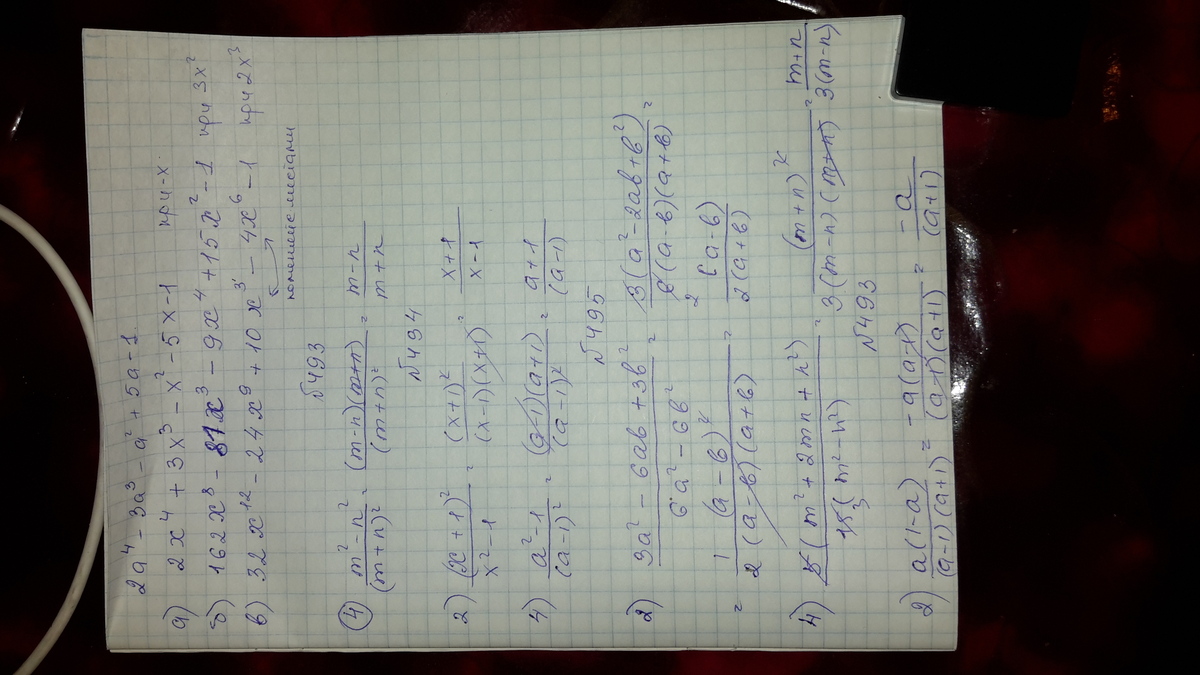 2a⁴ - 3a³ - a² + 5a - 1
а) 2x⁴ + 3x³ - x² - 5x - 1 при -x
б) 162x⁸ - 81x³ - 9x⁴ + 15x² - 1 при 3x²
в) 32x¹² - 24x⁹ + 10x³ - 4x⁶ - 1 при 2x³
поменяй местами
№493
④ (m² - n²)/(m+n)² = (m-n)(m+n)/(m+n)² = (m-n)/(m+n)
№494
2) (x+1)²/(x²-1) = (x+1)²/((x-1)(x+1)) = (x+1)/(x-1)
4) (a²-1)/(a-1)² = (a-1)(a+1)/(a-1)² = (a+1)/(a-1)
№495
2) (3a² - 6ab + 3b²)/(6a² - 6b²) = 3(a² - 2ab + b²)/(6(a-b)(a+b)) =
2
= 1(a-b)²/(2(a-b)(a+b)) = (a-b)/(2(a+b))
4) 5(m² + 2mn + n²)/(15(m² - n²)) = (m+n)²/(3(m-n)(m+n)) = (m+n)/(3(m-n))
3
№493
2) a(1-a)/((a-1)(a+1)) = -a(a-1)/((a-1)(a+1)) = -a/(a+1)